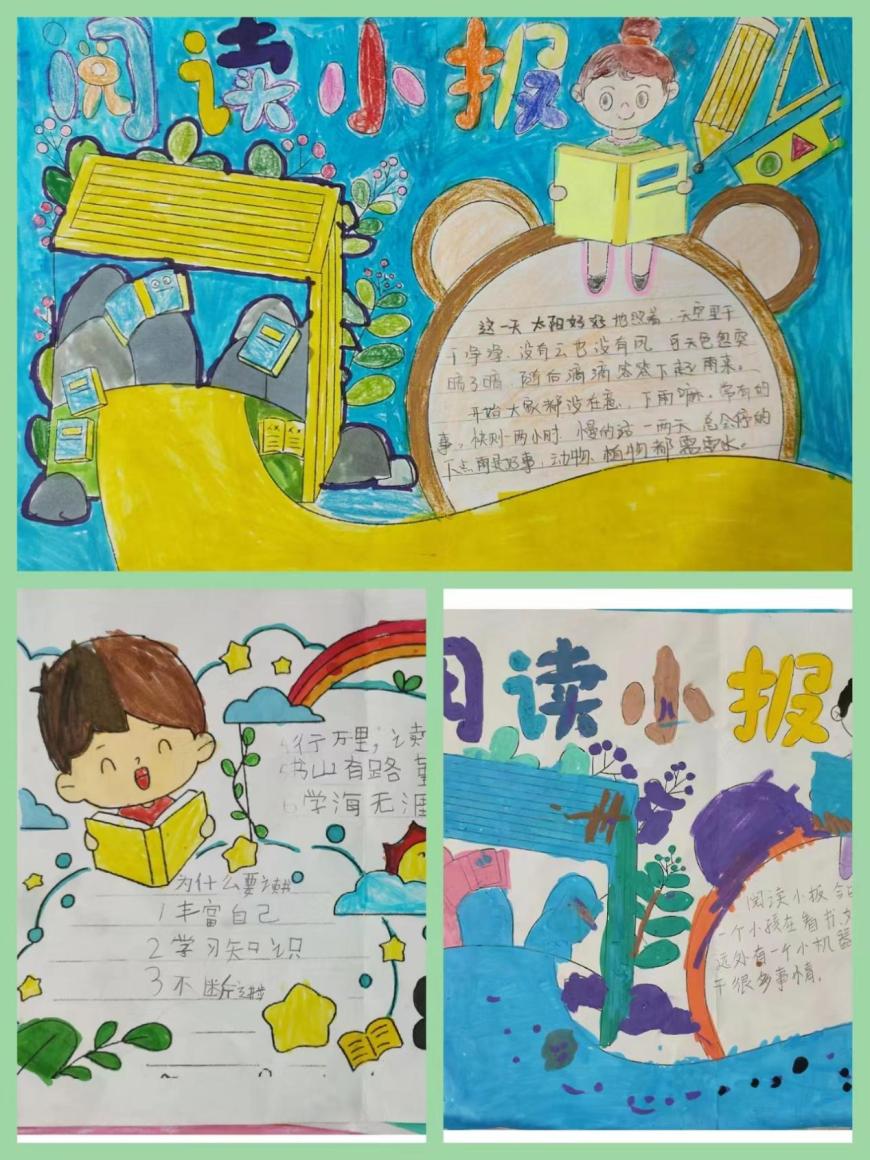 阅读小报
这一天太阳好好地照着,天空里干
干净净.没有云也没有风.可天色忽突
暗了暗.随后滴滴答答下起雨来。
开始大家都没在意,下雨嘛.常有的
事,快则一两小时.慢的话一两天总会停的
下点雨是好事,动物、植物都需要水。
行万里,读
书山有路
学海无涯
为什么要读书
1丰富自己
2学习知识
3不断
阅读小报
阅读小报
一个小孩在看书
远处有一个小机器
干很多事情.